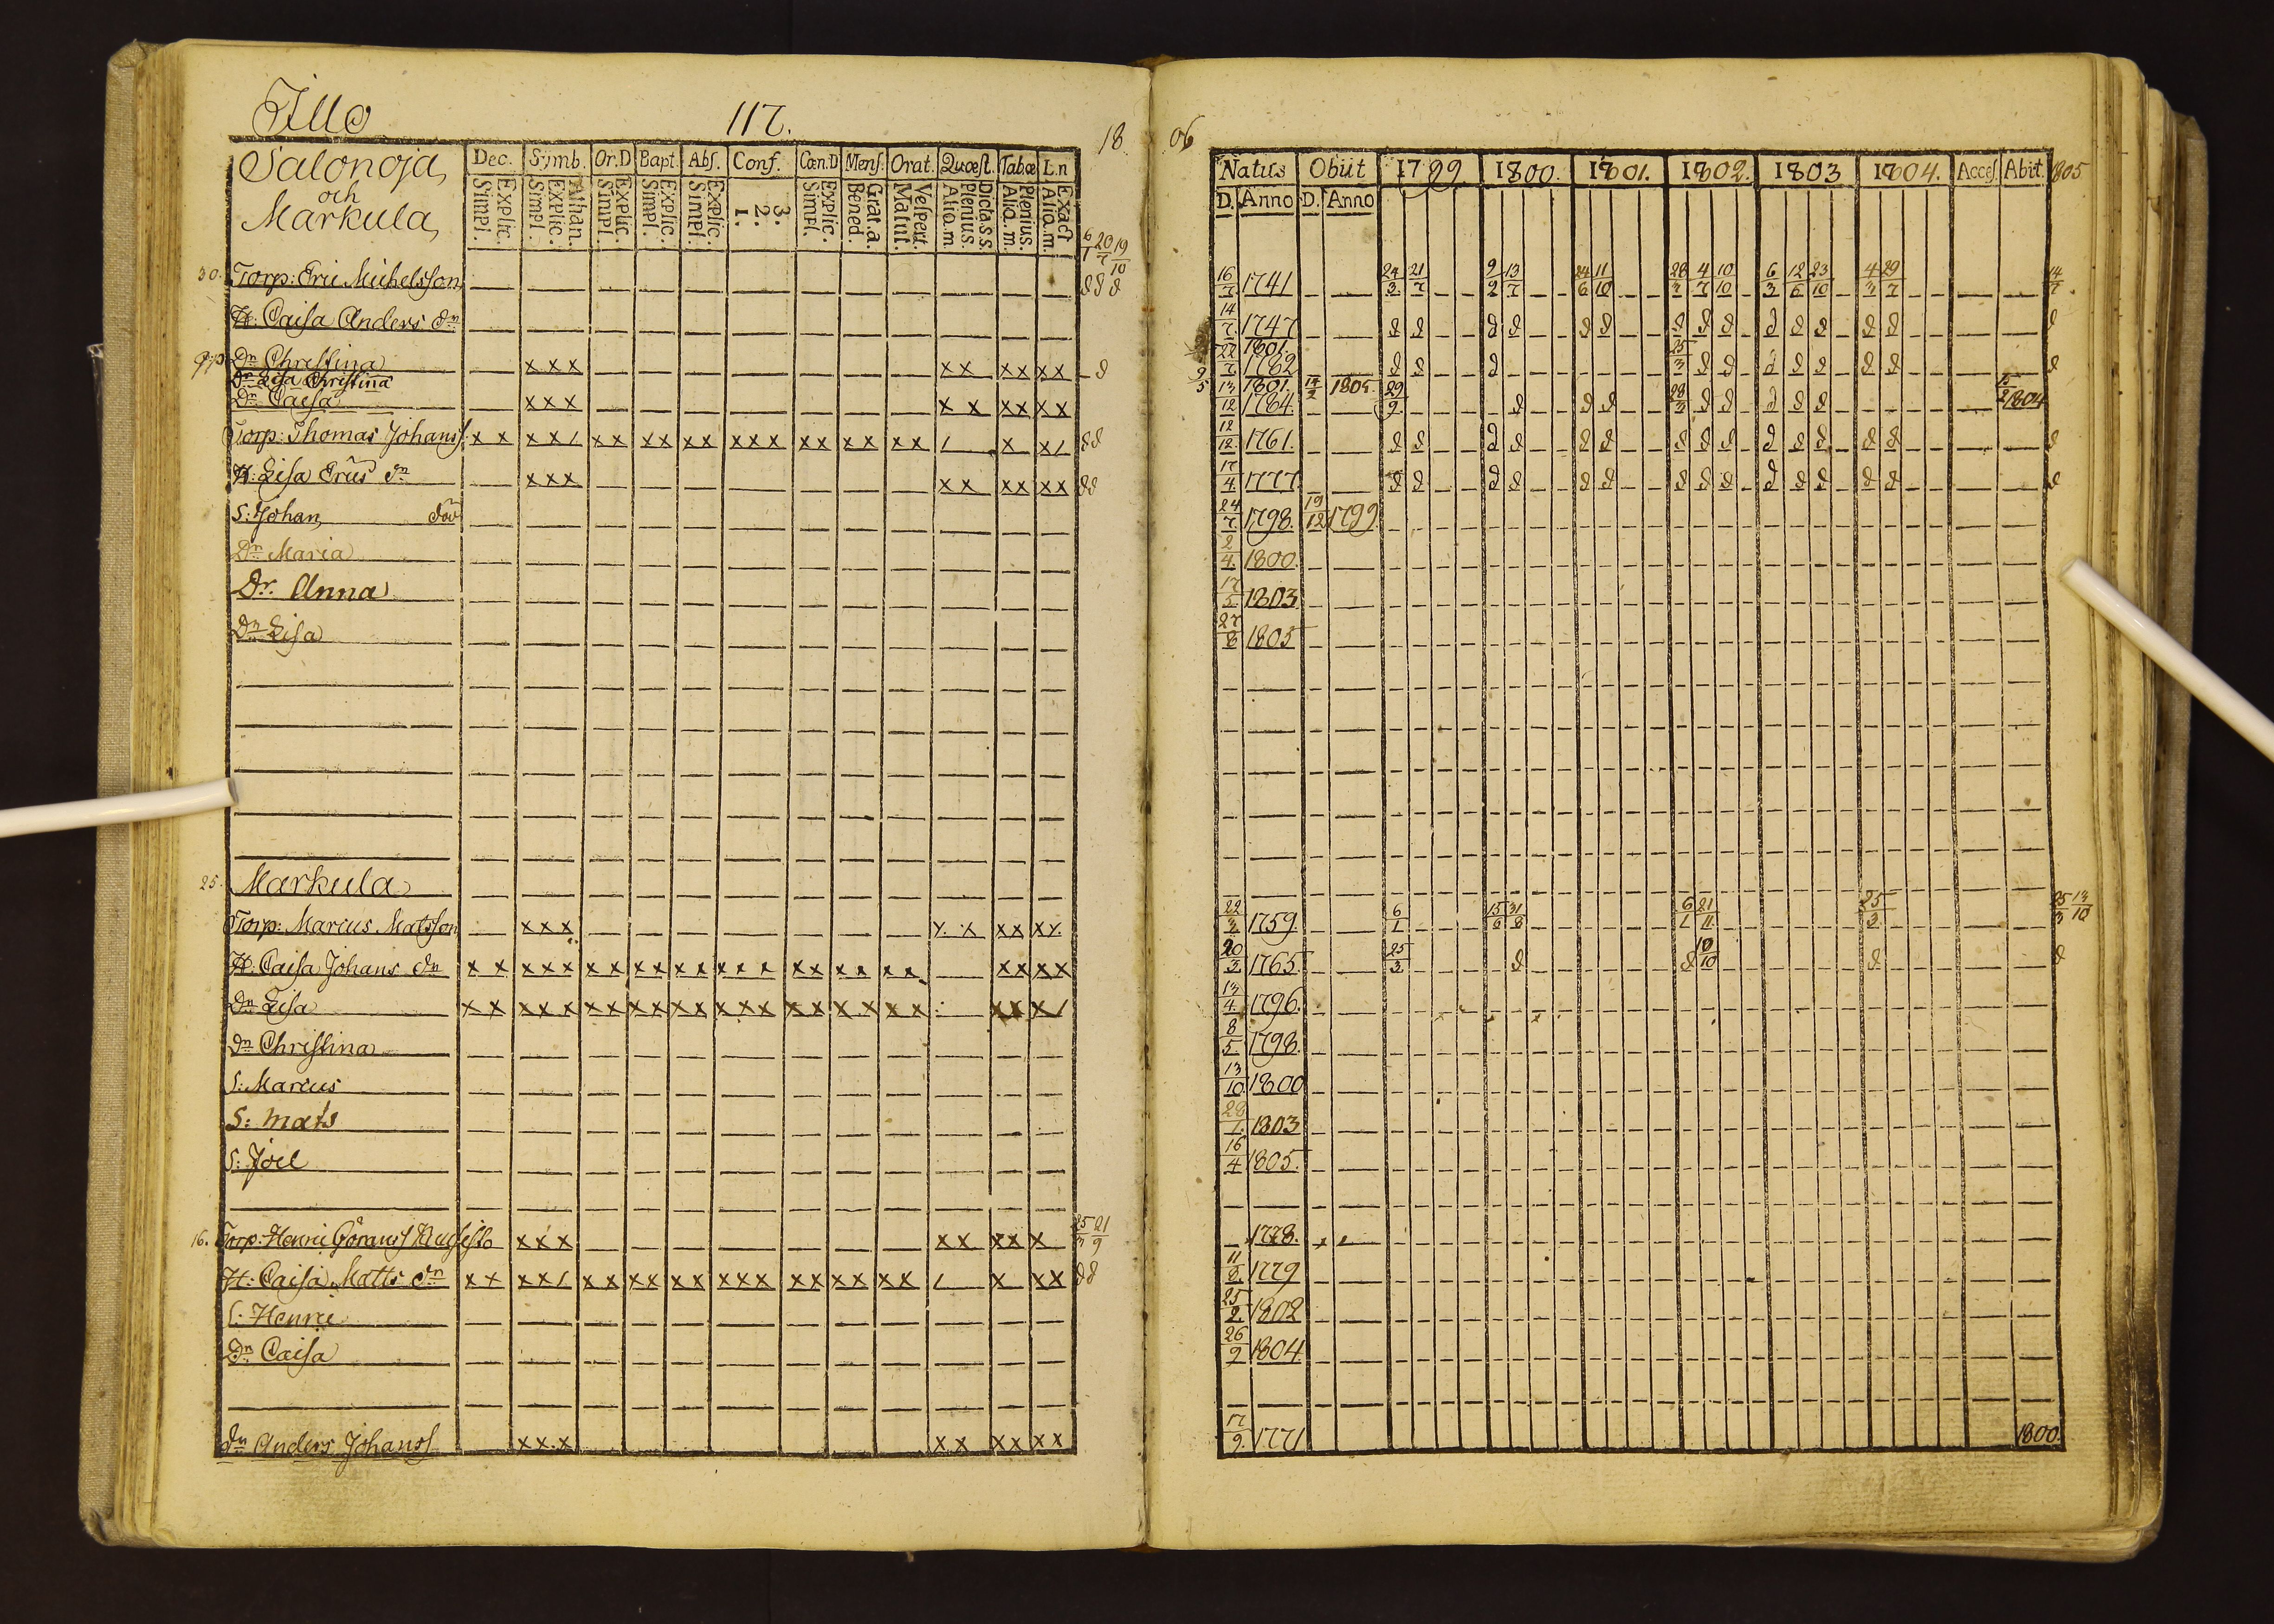 Illo
117.
18
Salonoja
och
Markula
Dec. Simb. Or.D Bapt. Abs. Conf. Cœn.D Mens. Orat. Quœst. Tabœ L.n
Explic. Simpl. Athan. Explic. Simpl. Explic. Simpl. Explic. Simpl. Explic. Simpl. 3. 2. 1. Explic. Simpl. Grat.a. Bened. Vespert. Matut. Dicta.s.s. Plenius. Aliq.m. Plenius. Aliq.m. Exact Aliq.m.
6/1 20/7 19/10
30. Torp: Eric Michelsson
H: Caisa Anders dn
Dn Christina x x x x x x x x x
Dn Lisa Christina
Dn Caisa x x x x x x x x x
Torp: Thomas Johanss. x x x x / x x x x x x x x x x x x x x x / x x /
H: Lisa Erics dn x x x x x x x x x
S: Johan död
Dn Maria
Dr. Anna
Dn Lisa
25. Markula
Torp: Marcus Matsson x x x x x x x x x
H. Caisa Johans dn x x x x x x x x x x x x x x x x x x x x x x x
Dn Lisa x x x x x x x x x x x x x x x x x x x x x x /
Dn Christina
S: Marcus
S: Mats
S: Joel
16. Torp: Henric Görans x x x x x x x x 25/3 21/9
H: Caisa Matts dn x x x x / x x x x x x x x x x x x x x x / x x x
S: Henric
Dn Caisa
dn Anders Johanss x x x x x x x x x
06
Natus Obiit 1799 1800. 1801. 1802. 1803 1804. Acces. Abit. 1805
D. Anno D. Anno
16/7 1741 24/3 21/7 9/2 13/7 24/6 11/10 28/3 4/7 10/10 6/3 12/6 23/10 4/3 29/7 14/7
14/7. 1747
22/7 1801. 1782 25/3
9/5 13/12 1801. 1784. 14/2 1805. 29/9 28/3 15/2 1804
12/12. 1761.
17/4. 1777
24/7 1798. 19/12 1799
2/4. 1800.
17/5 1803
27/8 1805
22/3 1759. 6/1 15/6 31/8 6/1 21/11. 25/3 25/3 13/10
20/3 1765 25/3 10/10
13/4. 1796.
8/5 1798.
13/10 1800
28/1. 1803
16/4 1805.
1778.
11/8. 1779
25/2. 1802
26/9 1804
17/9. 1771 1800.